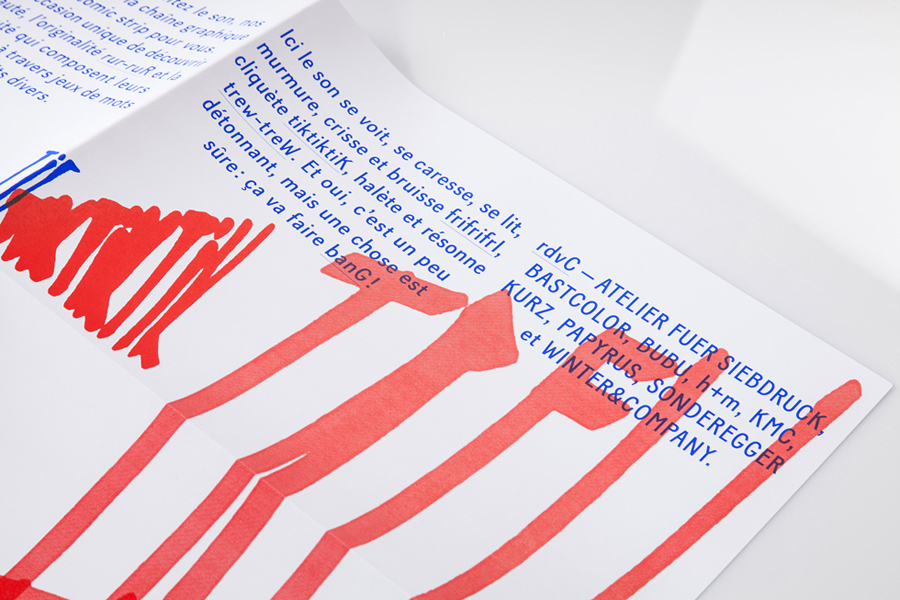 tez le son, nos
la chaîne graphique
omic strip pour vous
occasion unique de découvrir
uté, l'originalité rur-ruR et la
ité qui composent leurs
à travers jeux de mots
ts divers.
Ici le son se voit, se caresse, se lit,
murmure, crisse et bruisse frifrifrI,
cliquète tiktiktiK, halète et résonne
trew-treW. Et oui, c'est un peu
détonnant, mais une chose est
sûre : ça va faire banG !
rdvC – ATELIER FUER SIEBDRUCK,
BASTCOLOR, BUBU, h+m, KMC,
KURZ, PAPYRUS, SONDEREGGER
et WINTER&COMPANY.